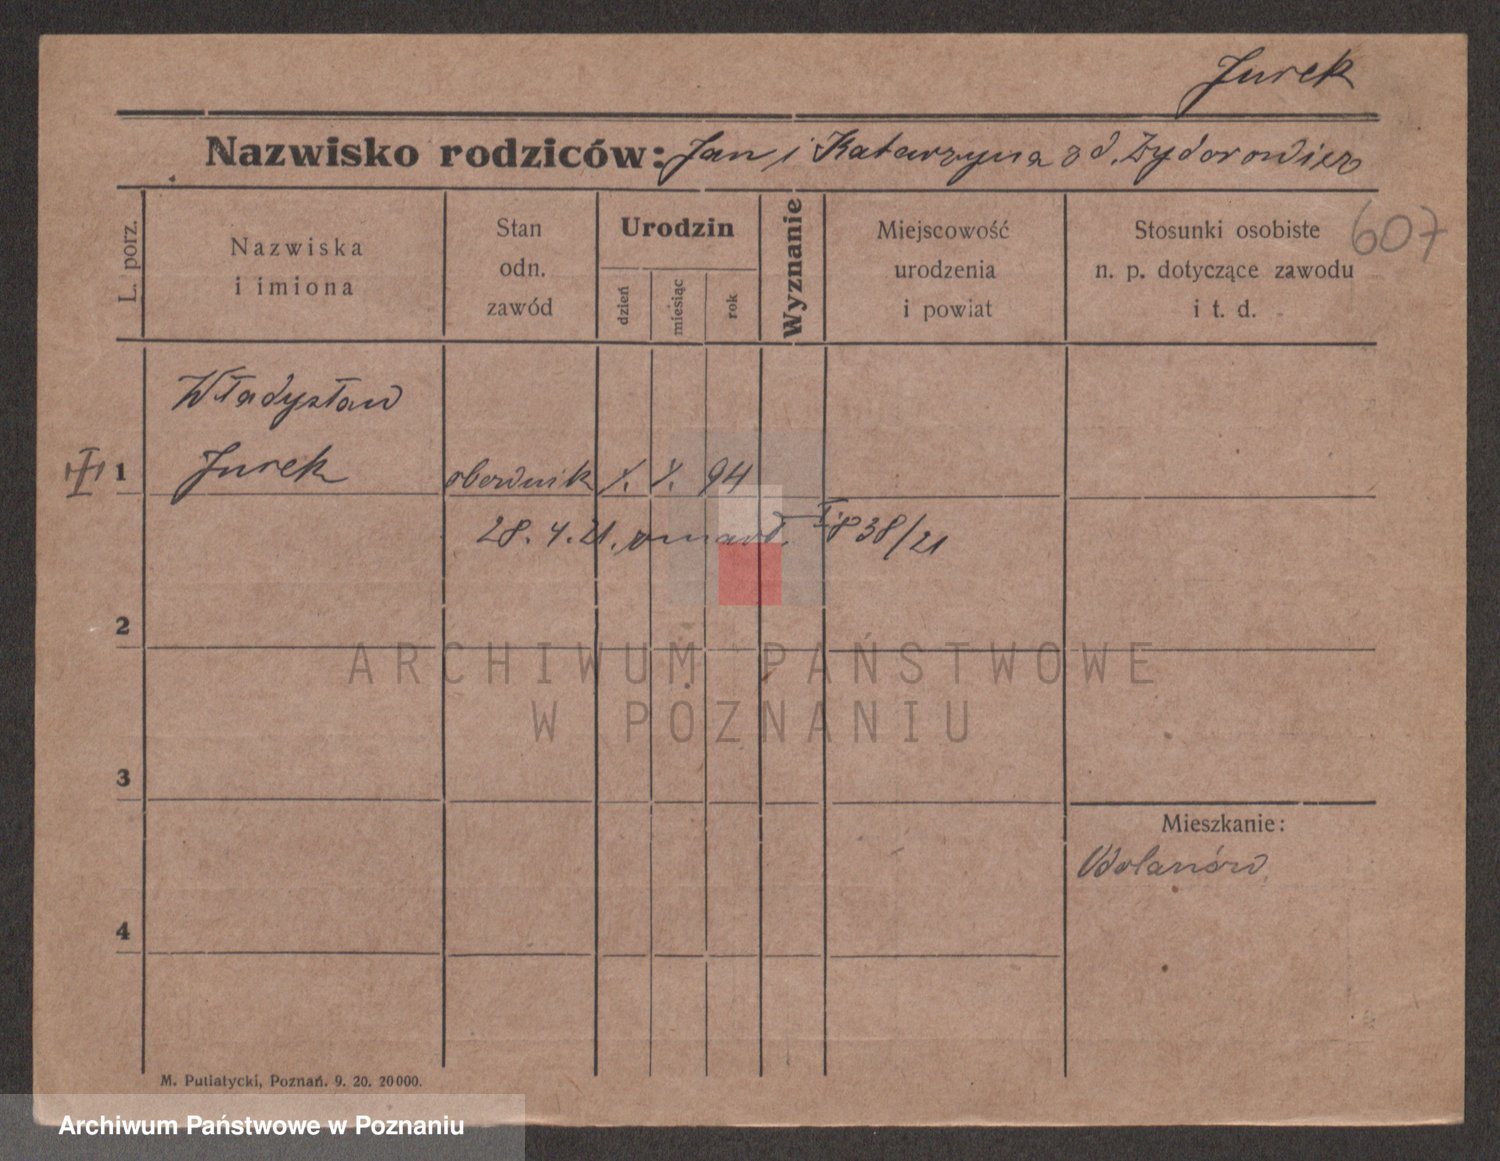 Jurek
Nazwisko rodziców: Jan i Katarzyna zd. Zydorowicz
607
L. porz.
Nazwiska
i imiona
Stan
odn.
zawód
Urodzin
dzień
miesiąc
rok
Wyznanie
Miejscowość
urodzenia
i powiat
Stosunki osobiste
n. p. dotyczące zawodu
i t. d.
Władysław
1
Jurek
94
28. 4. 21. zmarł 838/21
2
ARCHIWUM PAŃSTWOWE
W POZNANIU
3
Mieszkanie:
Wolanów
4
M. Putiatycki, Poznań. 9. 20. 20000.
Archiwum Państwowe w Poznaniu